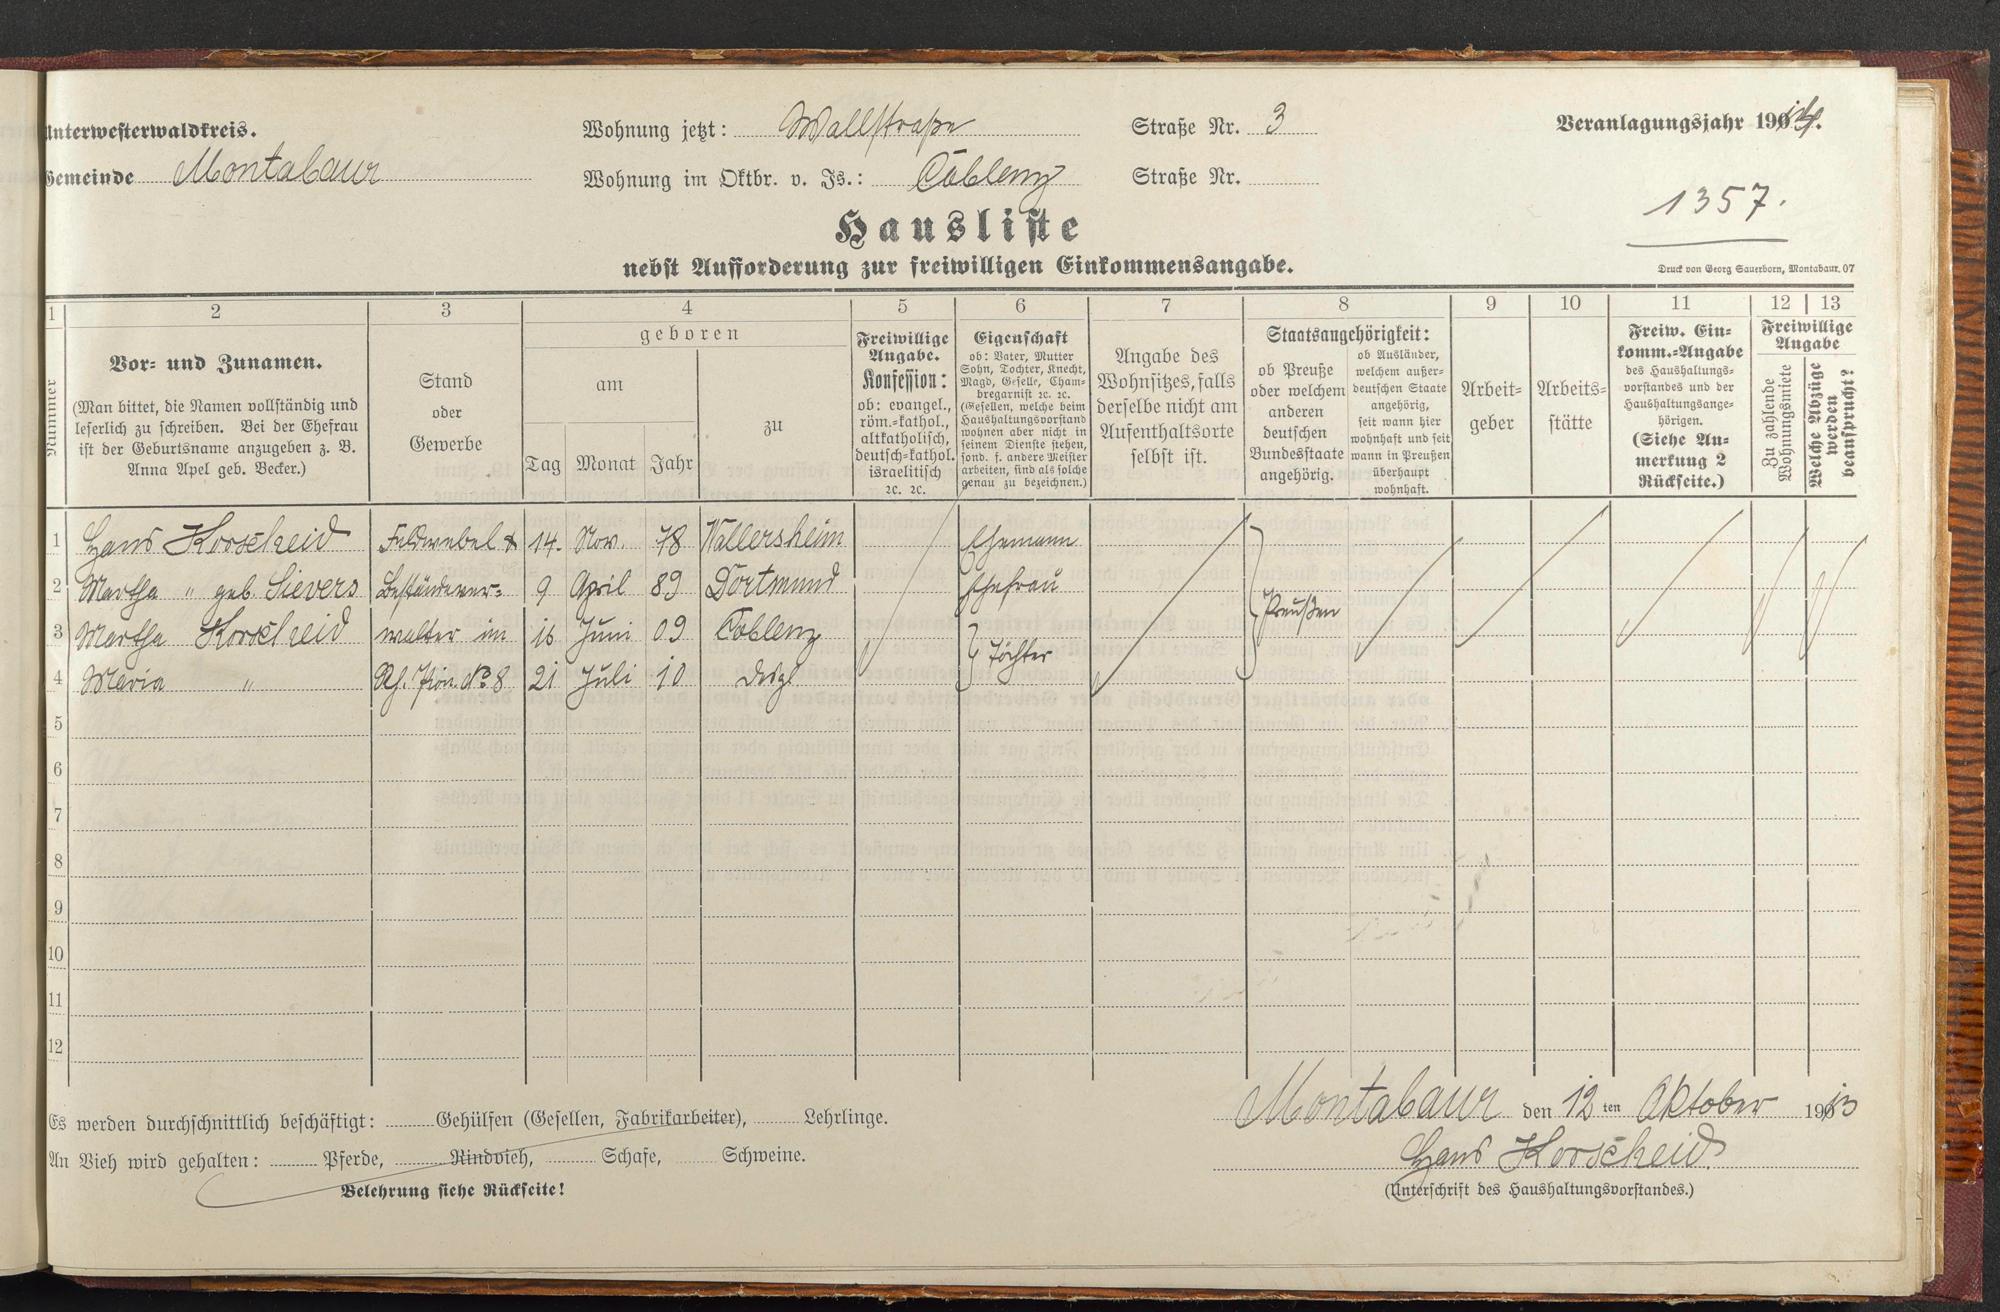 Unterwesterwaldkreis.
Wohnung jetzt: Wallstraße Straße Nr. 3
Veranlagungsjahr 1914.
Gemeinde Montabaur
Wohnung im Oktbr. v. Js.: Coblenz Straße Nr.
1357.
Hausliste
nebst Aufforderung zur freiwilligen Einkommensangabe.
Druck von Georg Sauerborn, Montabaur. 07
1 2 3 4 5 6 7 8 9 10 11 12 13
Nummer
Vor- und Zunamen.
(Man bittet, die Namen vollständig und
leserlich zu schreiben. Bei der Ehefrau
ist der Geburtsname anzugeben z. B.
Anna Apel geb. Becker.)
Stand
oder
Gewerbe
geboren
am
zu
Tag Monat Jahr
Freiwillige
Angabe.
Konfession:
ob: evangel.,
röm.=kathol.,
altkatholisch,
deutsch=kathol.
israelitisch
2c. 2c.
Eigenschaft
ob: Vater, Mutter
Sohn, Tochter, Knecht,
Magd, Geselle, Cham-
bregarnist 2c. 2c.
(Gesellen, welche beim
Haushaltungsvorstand
wohnen aber nicht in
seinem Dienste stehen,
sond. f. andere Meister
arbeiten, sind als solche
genau zu bezeichnen.)
Angabe des
Wohnsitzes, falls
derselbe nicht am
Aufenthaltsorte
selbst ist.
Staatsangehörigkeit:
ob Preuße
oder welchem
anderen
deutschen
Bundesstaate
angehörig.
ob Ausländer,
welchem außer-
deutschen Staate
angehörig,
seit wann hier
wohnhaft und seit
wann in Preußen
überhaupt
wohnhaft.
Arbeit-
geber
Arbeits-
stätte
Freiw. Ein-
komm.=Angabe
des Haushaltungs-
vorstandes und der
Haushaltungsange-
hörigen.
(Siehe An-
merkung 2
Rückseite.)
Freiwillige
Angabe
Zu zahlende
Wohnungsmiete
Welche Abzüge
werden
beansprucht?
1 Hans Korscheid Feldwebel & 14. Nov. 78 Wallersheim Ehemann
2 Martha " geb. Sievers Beständever- 9 April 89 Dortmund Ehefrau Preußen
3 Martha Korscheid walter im 16 Juni 09 Coblenz Töchter
4 Maria " Rh. Pion. No 8 21 Juli 10 dsgl
5
6
7
8
9
10
11
12
Montabaur den 12ten Oktober 1913
Es werden durchschnittlich beschäftigt: Gehülfen (Gesellen, Fabrikarbeiter), Lehrlinge.
Hans Korscheid
An Vieh wird gehalten: Pferde, Rindvieh, Schafe, Schweine.
(Unterschrift des Haushaltungsvorstandes.)
Belehrung siehe Rückseite!